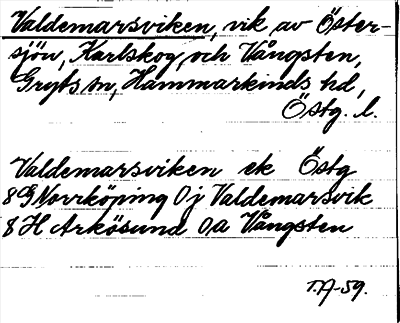 Valdemarsviken, vik av Öster-
sjön, Karlskog, och Vångsten,
Gryts sn, Hammarkinds hd,
Östg. l.
Valdemarsviken ek Östg
8 G Norrköping 0j Valdemarsvik
8 H Arkösund 0a Vångsten
T.A-59.